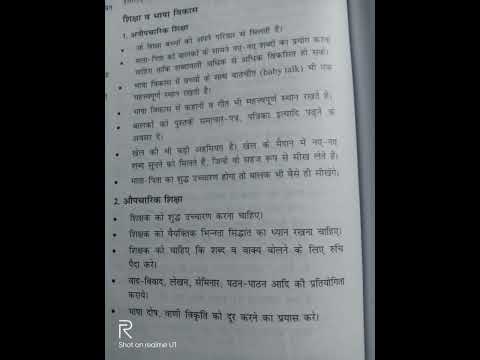 शिक्षा व भाषा विकास
1. अनौपचारिक शिक्षा
• जो शिक्षा बच्चों को अपने परिवार से मिलती है।
• माता-पिता को बालकों के सामने नए-नए शब्दों का प्रयोग करना
चाहिए ताकि शब्दावली अधिक से अधिक विकसित हो सके।
• भाषा विकास में बच्चों के साथ बातचीत (baby talk) भी एक
महत्त्वपूर्ण स्थान रखता है।
• भाषा विकास में कहानी व गीत भी महत्त्वपूर्ण स्थान रखते हैं।
• बालकों को पुस्तकें समाचार-पत्र, पत्रिका इत्यादि पढ़ने के
अवसर दें।
• खेल की भी बड़ी अहमियत है। खेल के मैदान में नए-नए
शब्द सुनने को मिलते हैं, जिन्हें वो सहज रूप से सीख लेते हैं।
• माता-पिता का शुद्ध उच्चारण होगा तो बालक भी वैसे ही सीखेंगे।
2. औपचारिक शिक्षा
• शिक्षक को शुद्ध उच्चारण करना चाहिए।
• शिक्षक को वैयक्तिक भिन्नता सिद्धांत का ध्यान रखना चाहिए।
• शिक्षक को चाहिए कि शब्द व वाक्य बोलने के लिए रुचि
पैदा करे।
• वाद-विवाद, लेखन, सेमिनार, पठन-पाठन आदि की प्रतियोगिता
कराये।
• भाषा दोष, वाणी विकृति को दूर करने का प्रयास करें।
R
Shot on realme U1